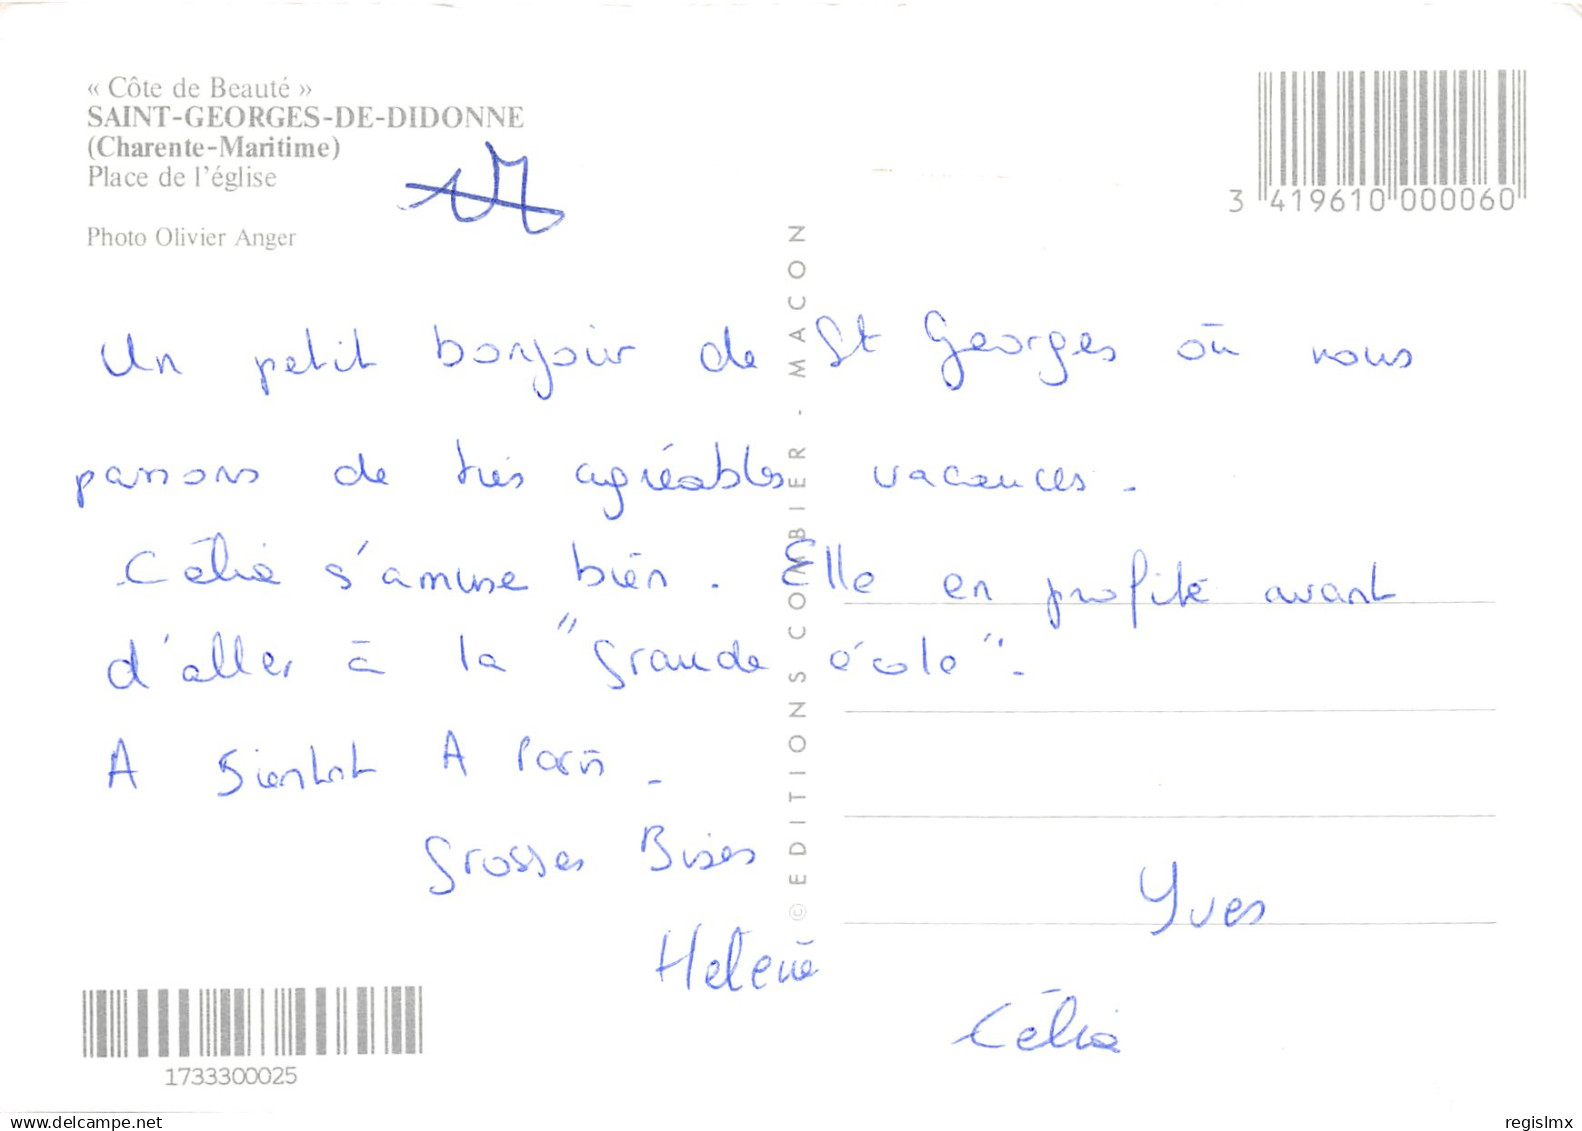 « Côte de Beauté »
SAINT-GEORGES-DE-DIDONNE
(Charente-Maritime)
Place de l'église
Photo Olivier Anger
3 419610 000060
Un petit bonjour de St Georges où nous
passons de très agréables vacances.
Célia s'amuse bien. Elle en profite avant
d'aller à la "Grande école".
A Bientot A Paris.
Grosses Bises
Yves
Helene
Célia
© EDITIONS COMBIER - MACON
1733300025
delcampe.net
regislmx